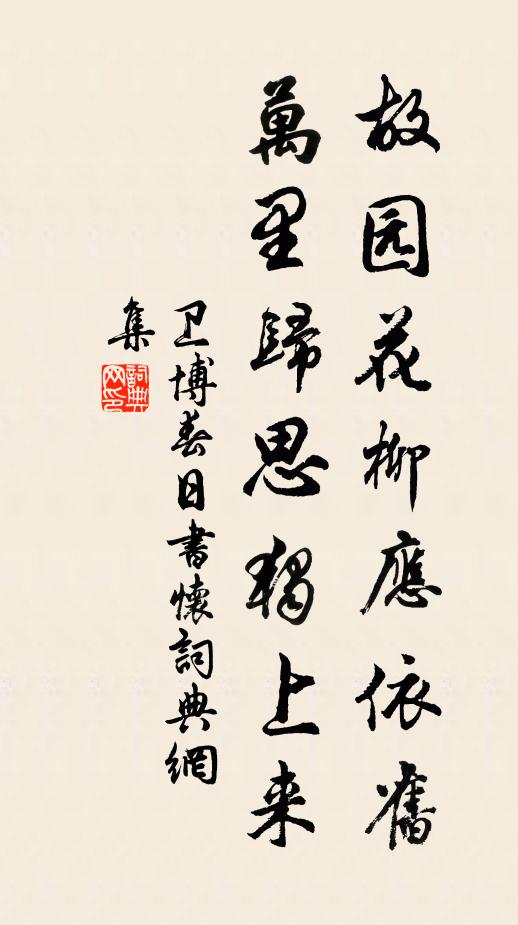 故园花柳應依舊
萬里歸思獨上来
卫博春日書懷詞典網
集
詞典
网印